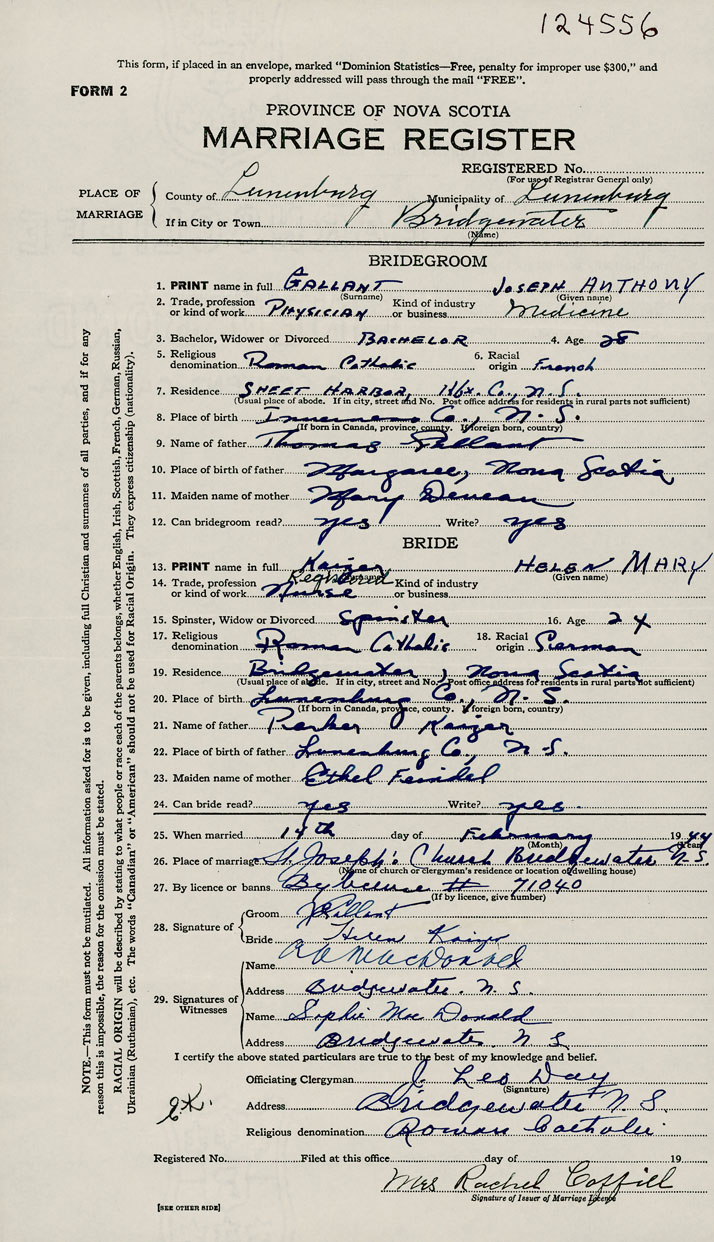 124556
This form, if placed in an envelope, marked "Dominion Statistics—Free, penalty for improper use $300," and
properly addressed will pass through the mail "FREE".
FORM 2
PROVINCE OF NOVA SCOTIA
MARRIAGE REGISTER
REGISTERED No.
(For use of Registrar General only)
PLACE OF MARRIAGE
County of Lunenburg Municipality of Lunenburg
If in City or Town Bridgewater
(Name)
BRIDEGROOM
1. PRINT name in full GALLANT JOSEPH ANTHONY
(Surname) (Given name)
2. Trade, profession or kind of work PHYSICIAN Kind of industry or business Medicine
3. Bachelor, Widower or Divorced BACHELOR 4. Age 28
5. Religious denomination Roman Catholic 6. Racial origin French
7. Residence SHEET HARBOR, Hfx. Co., N.S.
(Usual place of abode. If in city, street and No. Post office address for residents in rural parts not sufficient)
8. Place of birth Inverness Co., N.S.
(If born in Canada, province, county. If foreign born, country)
9. Name of father Thomas Gallant
10. Place of birth of father Margaree, Nova Scotia
11. Maiden name of mother Mary
12. Can bridegroom read? yes Write? yes
BRIDE
13. PRINT name in full Kaizer HELEN MARY
(Surname) (Given name)
14. Trade, profession or kind of work Registered Nurse Kind of industry or business
15. Spinster, Widow or Divorced Spinster 16. Age 24
17. Religious denomination Roman Catholic 18. Racial origin German
19. Residence Bridgewater, Nova Scotia
(Usual place of abode. If in city, street and No. Post office address for residents in rural parts not sufficient)
20. Place of birth Lunenburg Co., N.S.
(If born in Canada, province, county. If foreign born, country)
21. Name of father Parker Kaizer
22. Place of birth of father Lunenburg Co., N.S.
23. Maiden name of mother Ethel Feindel
24. Can bride read? yes Write? yes
25. When married 14th day of February 1944
(Month) (Year)
26. Place of marriage St. Joseph's Church Bridgewater N.S.
(Name of church or clergyman's residence or location of dwelling house)
27. By licence or banns By licence # 71040
(If by licence, give number)
28. Signature of
Groom J Gallant
Bride Helen Kaizer
29. Signatures of Witnesses
Name MacDonald
Address Bridgewater. N.S.
Name Sophie MacDonald
Address Bridgewater. N.S.
I certify the above stated particulars are true to the best of my knowledge and belief.
Officiating Clergyman J. Leo Day
(Signature)
Address Bridgewater N.S.
Religious denomination Roman Catholic
Registered No. Filed at this office day of 19
Mrs Rachel Coffill
Signature of Issuer of Marriage Licence
[SEE OTHER SIDE]
NOTE.—This form must not be mutilated. All information asked for is to be given, including full Christian and surnames of all parties, and if for any
reason this is impossible, the reason for the omission must be stated.
RACIAL ORIGIN will be described by stating to what people or race each of the parents belongs, whether English, Irish, Scottish, French, German, Russian,
Ukrainian (Ruthenian), etc. The words "Canadian" or "American" should not be used for Racial Origin. They express citizenship (nationality).